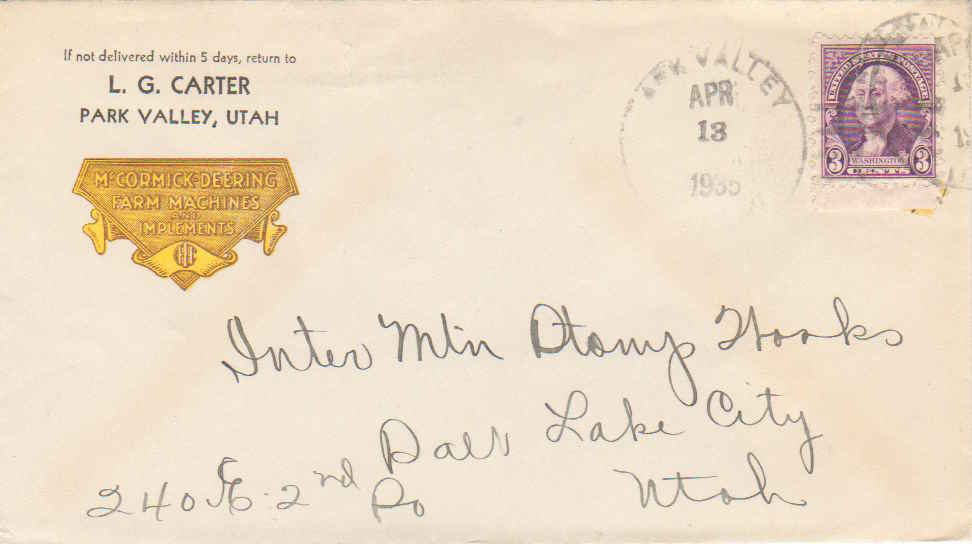 If not delivered within 5 days, return to
L. G. CARTER
PARK VALLEY, UTAH
McCORMICK-DEERING
FARM MACHINES
AND
IMPLEMENTS
IHC
PARK VALLEY
APR
13
1935
UNITED STATES POSTAGE
3 WASHINGTON 3
CENTS
AP
1
Inter Mtn Stamp Works
Salt Lake City
240 E. 2nd So Utah